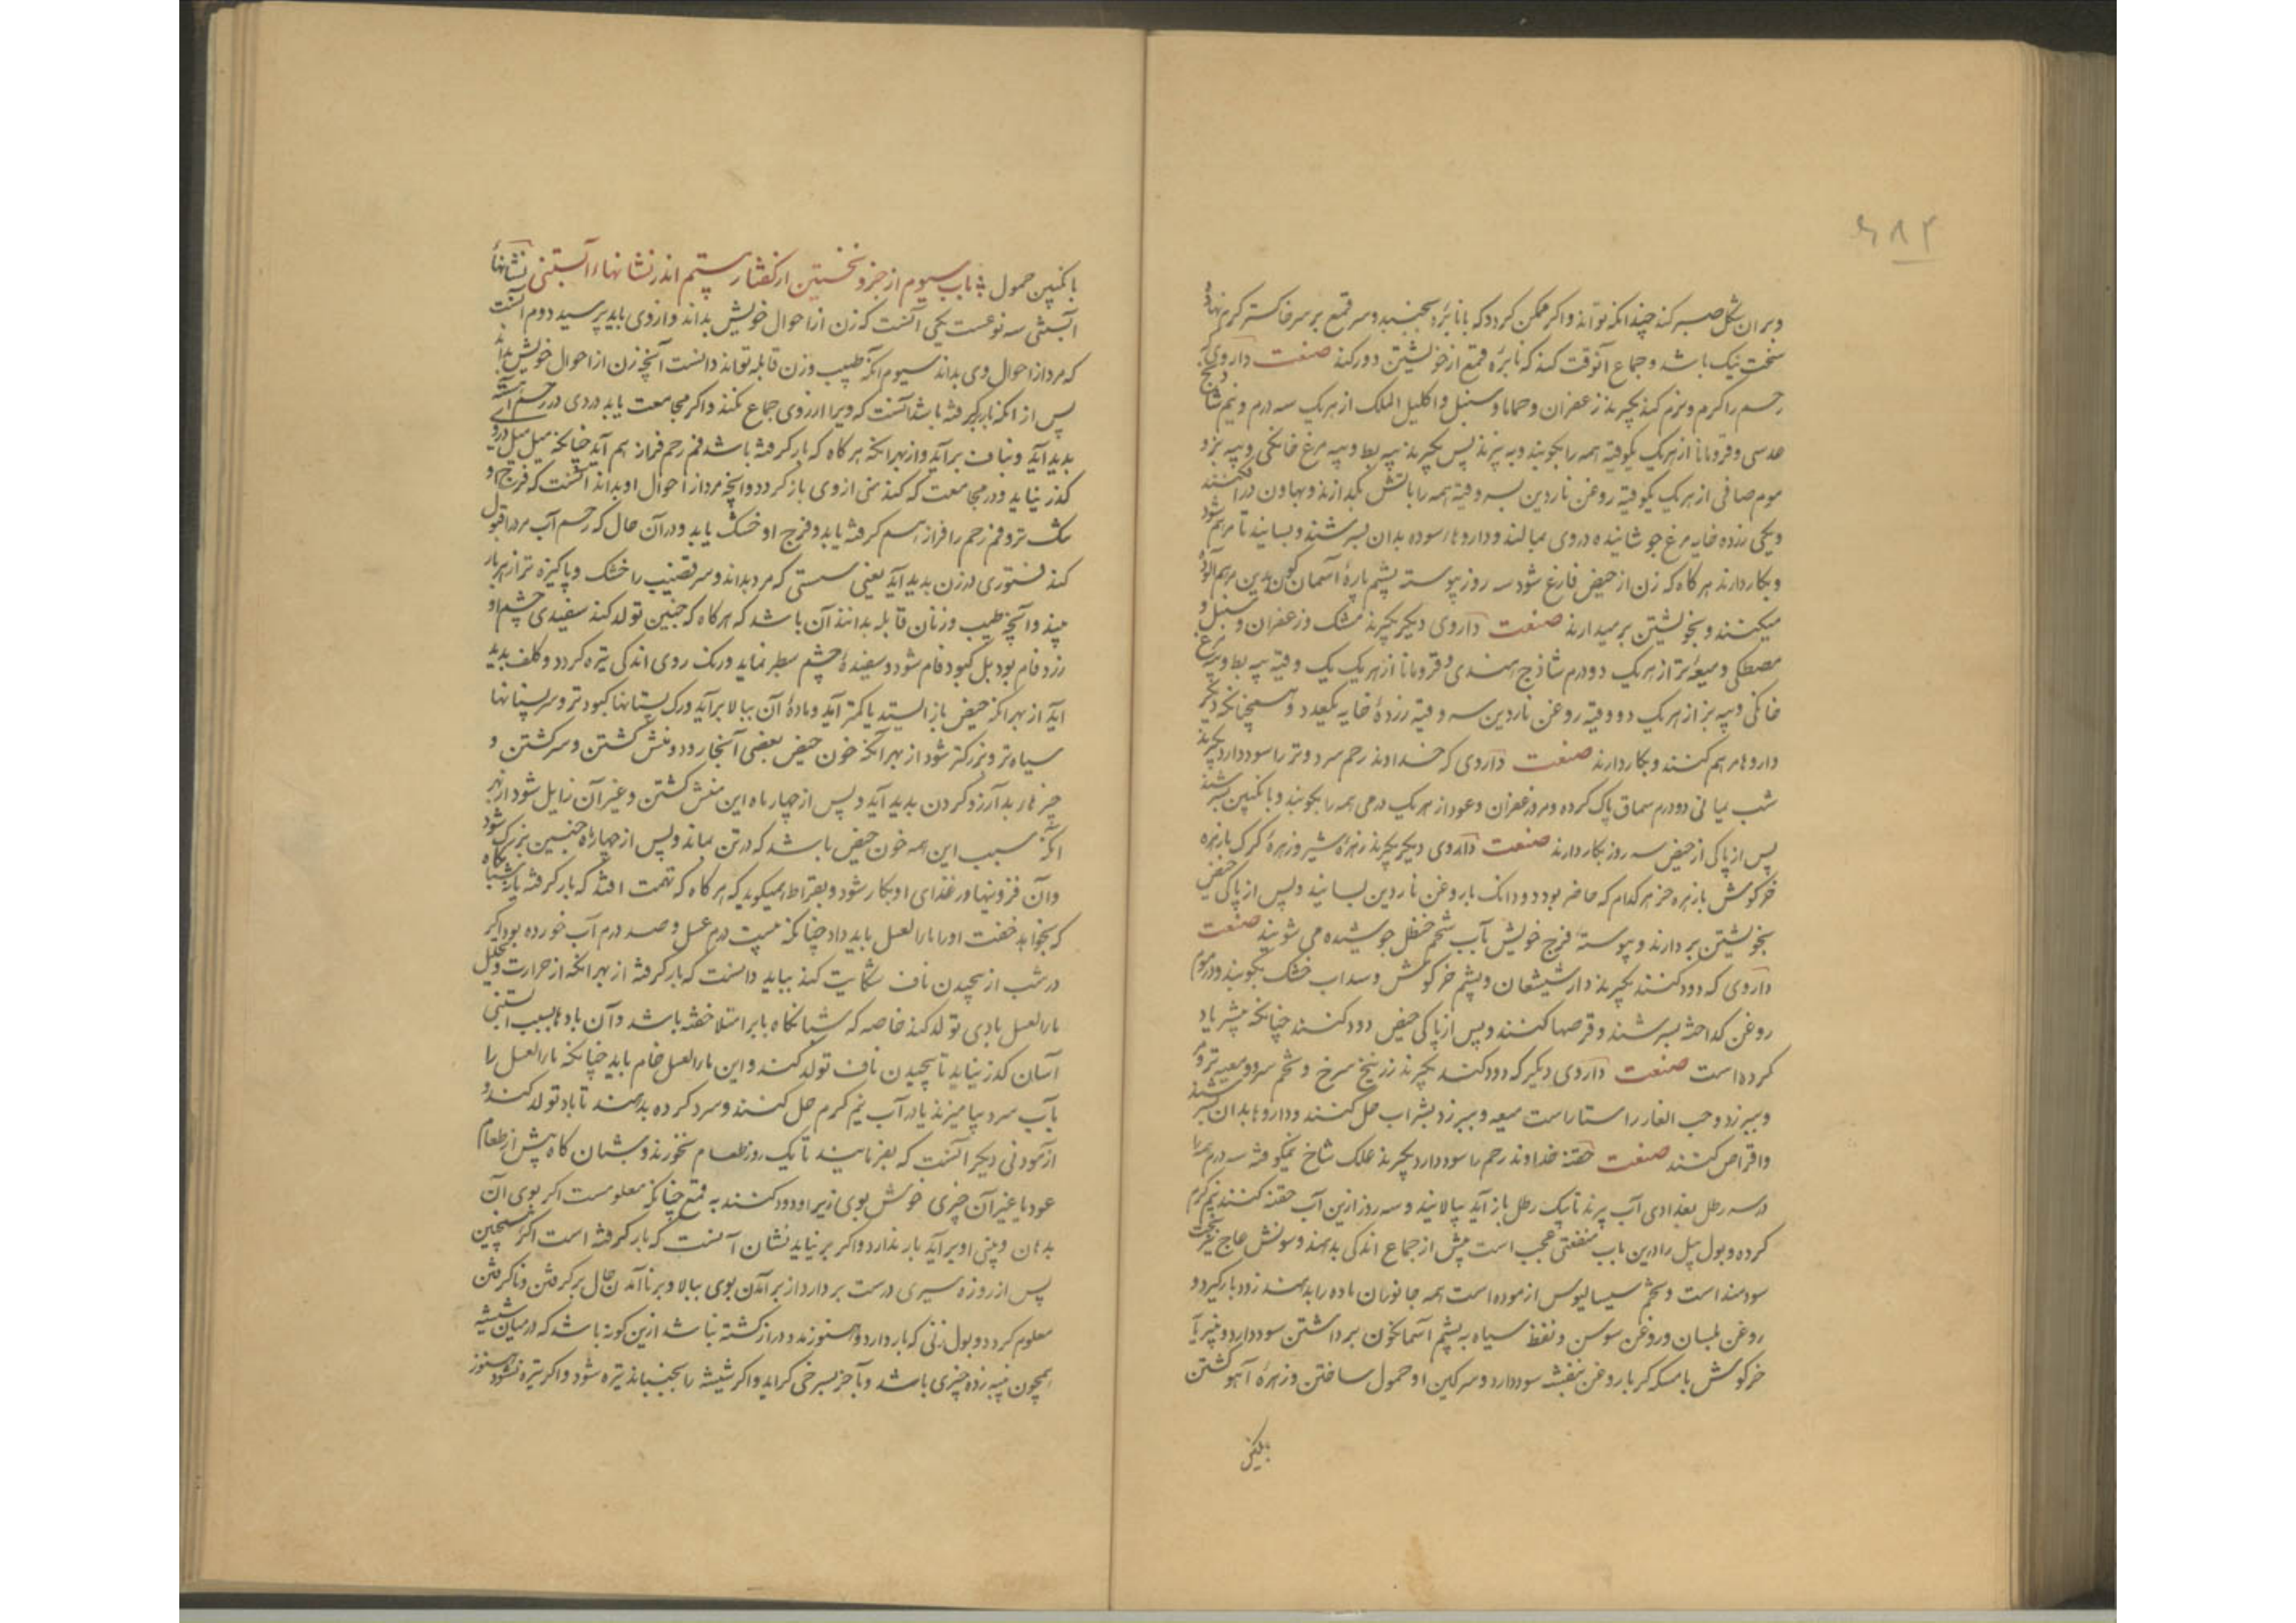 وبران شکل صبر کند چندانکه تواند واکر ممکن کردد که با نابزه بجنبد وسر قمع بر سر خاکستر کرم نهاده
سخت نیک باشد وجماع آنوقت کند که نابزه قمع از خویشتن دور کند صفت داروی که
رحم را کرم ونرم کند بکیرند زعفران وحماما وسنبل واکلیل الملک از هر یک سه درم ونیم شاذج
عدسی وقرمانا از هر یک یکوقیه همه را بکوبند وبه پزند پس بکیرند پیه بط وپیه مرغ خانکی وپیه بز و
موم صافی از هر یک یکوقیه روغن ناردین سه وقیه همه را باتش بکدازند وبهاون در افکنند
ویکی زرده خایه مرغ جوشانیده دروی بمالند وداروها سوده بدان بسرشند وبسایند تا مرهم شود
وبکار دارند هر کاه که زن از حیض فارغ شود سه روز پیوسته پشم پارۀ آسمان کون بدین مرهم آلوده
میکنند وبخویشتن بر میدارند صفت داروی دیکر بکیرند مشک وزعفران وسنبل و
مصطکی ومیعۀ تر از هر یک دو درم شاذج هندی وقرمانا از هر یک یک وقیه پیه بط وپیه مرغ
خانکی وپیه بز از هر یک دو وقیه روغن ناردین سه وقیه زردۀ خایه یکعدد وهمچنانکه دیکر
داروها مرهم کنند وبکار دارند صفت داروی که خداوند رحم سرد وتر را سود دارد بکیرند
شب یمانی دو درم سماق پاک کرده ومر وزعفران وعود از هر یک درمی همه را بکوبند وبانکبین بسرشند
پس از پاکی از حیض سه روز بکار دارند صفت داروی دیکر بکیرند زهرۀ شیر وزهرۀ کرک یا زهره
خرکوش یا زهره خز هر کدام که حاضر بود دو دانک با روغن ناردین بسایند وپس از پاکی حیض
بخویشتن بر دارند وپیوسته فرج خویش بآب شحم حنظل جوشیده می شویند صفت
داروی که دود کنند بکیرند دارشیشعان وپشم خرکوش وسداب خشک بکوبند ودر موم
روغن کداخته بسرشند وقرصها کنند وپس از پاکی حیض دود کنند چنانکه پیشتر یاد
کرده است صفت داروی دیکر که دود کنند بکیرند زرنیخ سرخ وتخم سرو ومیعه تر ومر
وبیرزد وحب الغار راستاراست میعه وبیرزد بشراب حل کنند وداروها بدان بسرشند
واقراص کنند صفت حقنه خداوند رحم را سود دارد بکیرند علک شاخ نیمکوفته سه درم
در سه رطل بغدادی آب پزند تا بیک رطل باز آید بپالایند وسه روز ازین آب حقنه کنند نیم کرم
کرده وبول پیل را درین باب منفعتی عجب است پیش از جماع اندکی بدهند وسونش عاج نیز سخت
سودمند است وتخم سیسالیوس ازموده است همه جانوران ماده را بدهند زود بار کیرد و
روغن بلسان وروغن سوسن ونفط سیاه به پشم آسمانکون برداشتن سود دارد وپنیر مآیه
خرکوش با مسکه کر با روغن بنفشه سود دارد وسرکین او حمول ساختن وزهرۀ آهو کشتن
بانکبین
بانکبین حمول باب سیوم از جزو نخستین از کفتار بیستم اندر نشانهاء آبستنی نشانها
آبستنی سه نوعست یکی آنست که زن از احوال خویش بداند واز وی باید پرسید دوم آنست
که مرد از احوال وی بداند سیوم آنکه طبیب وزن قابله تواند دانست آنچه زن از احوال خویش بداند
پس از انکه بار برکرفته باشد آنست که ویرا ارزوی جماع نکند واکر مجامعت یابد دردی در رحم آهسته
بدید آید وبناف برآید واز بهر انکه هر کاه که بار کرفته باشد فم رحم فراز هم آید چنانکه میل میل درو
کذر نیابد ودر مجامعت که کند منی از وی باز کردد وانچه مرد از احوال او بداند آنست که فرج او
تنک تر وفم رحم را فراز هم کرفته یابد وفرج او خشک یابد ودر آن حال که رحم آب مرد را قبول
کند فتوری در زن بدید آید یعنی سستی که مرد بداند وسر قضیب را خشک وپاکیزه تر از هر بار
بیند وآنچه طبیب وزنان قابله بدانند آن باشد که هر کاه که جنین تولد کند سفیدی چشم او
زرد فام بود بل کبود فام شود وسفیدۀ چشم سطبر نماید ورنک روی اندکی تیره کردد وکلف بدید
آید از بهر آنکه حیض باز ایستد یا کمتر آید ومادۀ آن ببالا برآید ورک پستانها کبود تر وسر پستانها
سیاه تر وبزرکتر شود از بهر آنکه خون حیض بعضی آنجا رود ومنش کشتن وسر کشتن و
چیزهار بد آرزو کردن بدید آید وپس از چهار ماه این منش کشتن وغیر آن زایل شود از بهر
آنکه سبب این همه خون حیض باشد که در تن بماند وپس از چهار ماه جنین بزرک شود
وآن فزونیها در غذای او بکار شود وبقراط همیکوید که هر کاه که تهمت افتد که بار کرفته یا نه شبانکاه
که بخواهد خفت او را ماءالعسل باید داد چنانکه بیست درم عسل وصد درم آب خورده بود اکر
در شب از پیچیدن ناف شکایت کند بباید دانست که بار کرفته از بهر آنکه از حرارت وتحلیل
ماءالعسل بادی تولد کند خاصه که شبانکاه بابر امتلا خفته باشد وآن بادها بسبب آبستنی
آسان کذر نیابد تا پیچیدن ناف تولد کند واین ماءالعسل خام باید چنانکه ماءالعسل را
بآب سرد بیامیزند یا در آب نیم کرم حل کنند وسرد کرده بدهند تا باد تولد کند و
ازمودنی دیکر آنست که بفرمایند تا یک روز طعام نخورند وشبان کاه پیش از طعام
عود یا غیر آن چیزی خوش بوی زیر او دود کنند به قمع چنانکه معلومست اکر بوی آن
بدهان وبینی او برآید بار ندارد واکر بر نیاید نشان آنست که بار کرفته است اکر همچنین
پس از روزه سیری درست بردارد از برآمدن بوی ببالا وبر ناآمدن حال برکرفتن وناکرفتن
معلوم کردد وبول زنی که بار دارد وهنوز مدد دراز کشته نباشد ازین کونه باشد که در میان شیشه
همچون پنبه زده چیزی باشد وبآخر بسرخی کراید واکر شیشه را بجنبانند تیره شود واکر تیره نشود هنوز